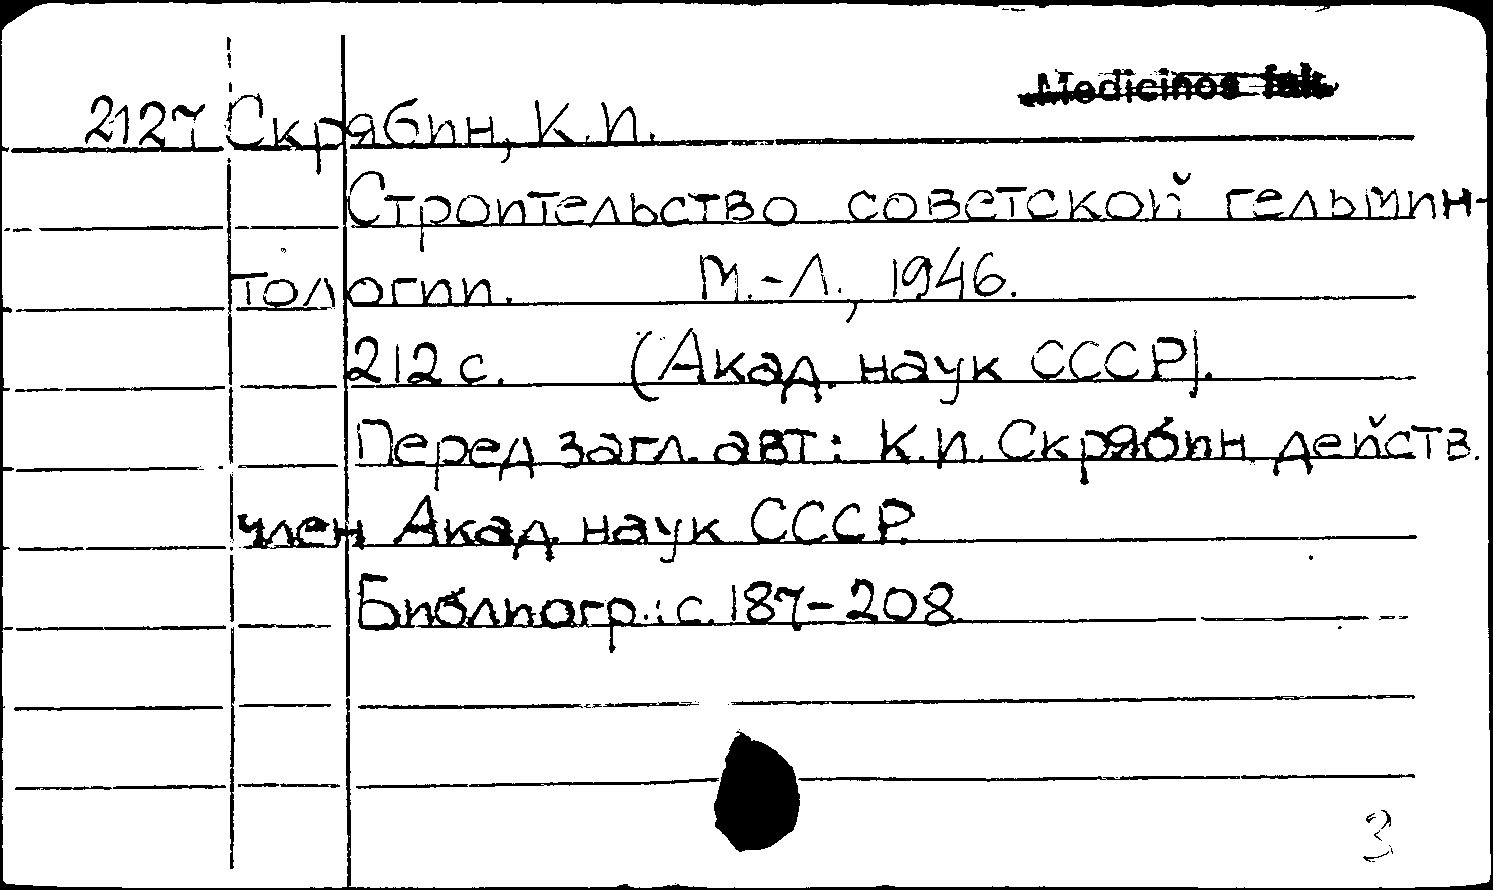 Medicinos fak.
2127 Скрябин, К.И.
Строительство советской гельмин-
тологии. М.-Л., 1946.
212 с. (Акад. наук СССР).
Перед загл. авт: К.И. Скрябин действ.
член Акад. наук СССР.
Библиогр.: с. 187-208.
3